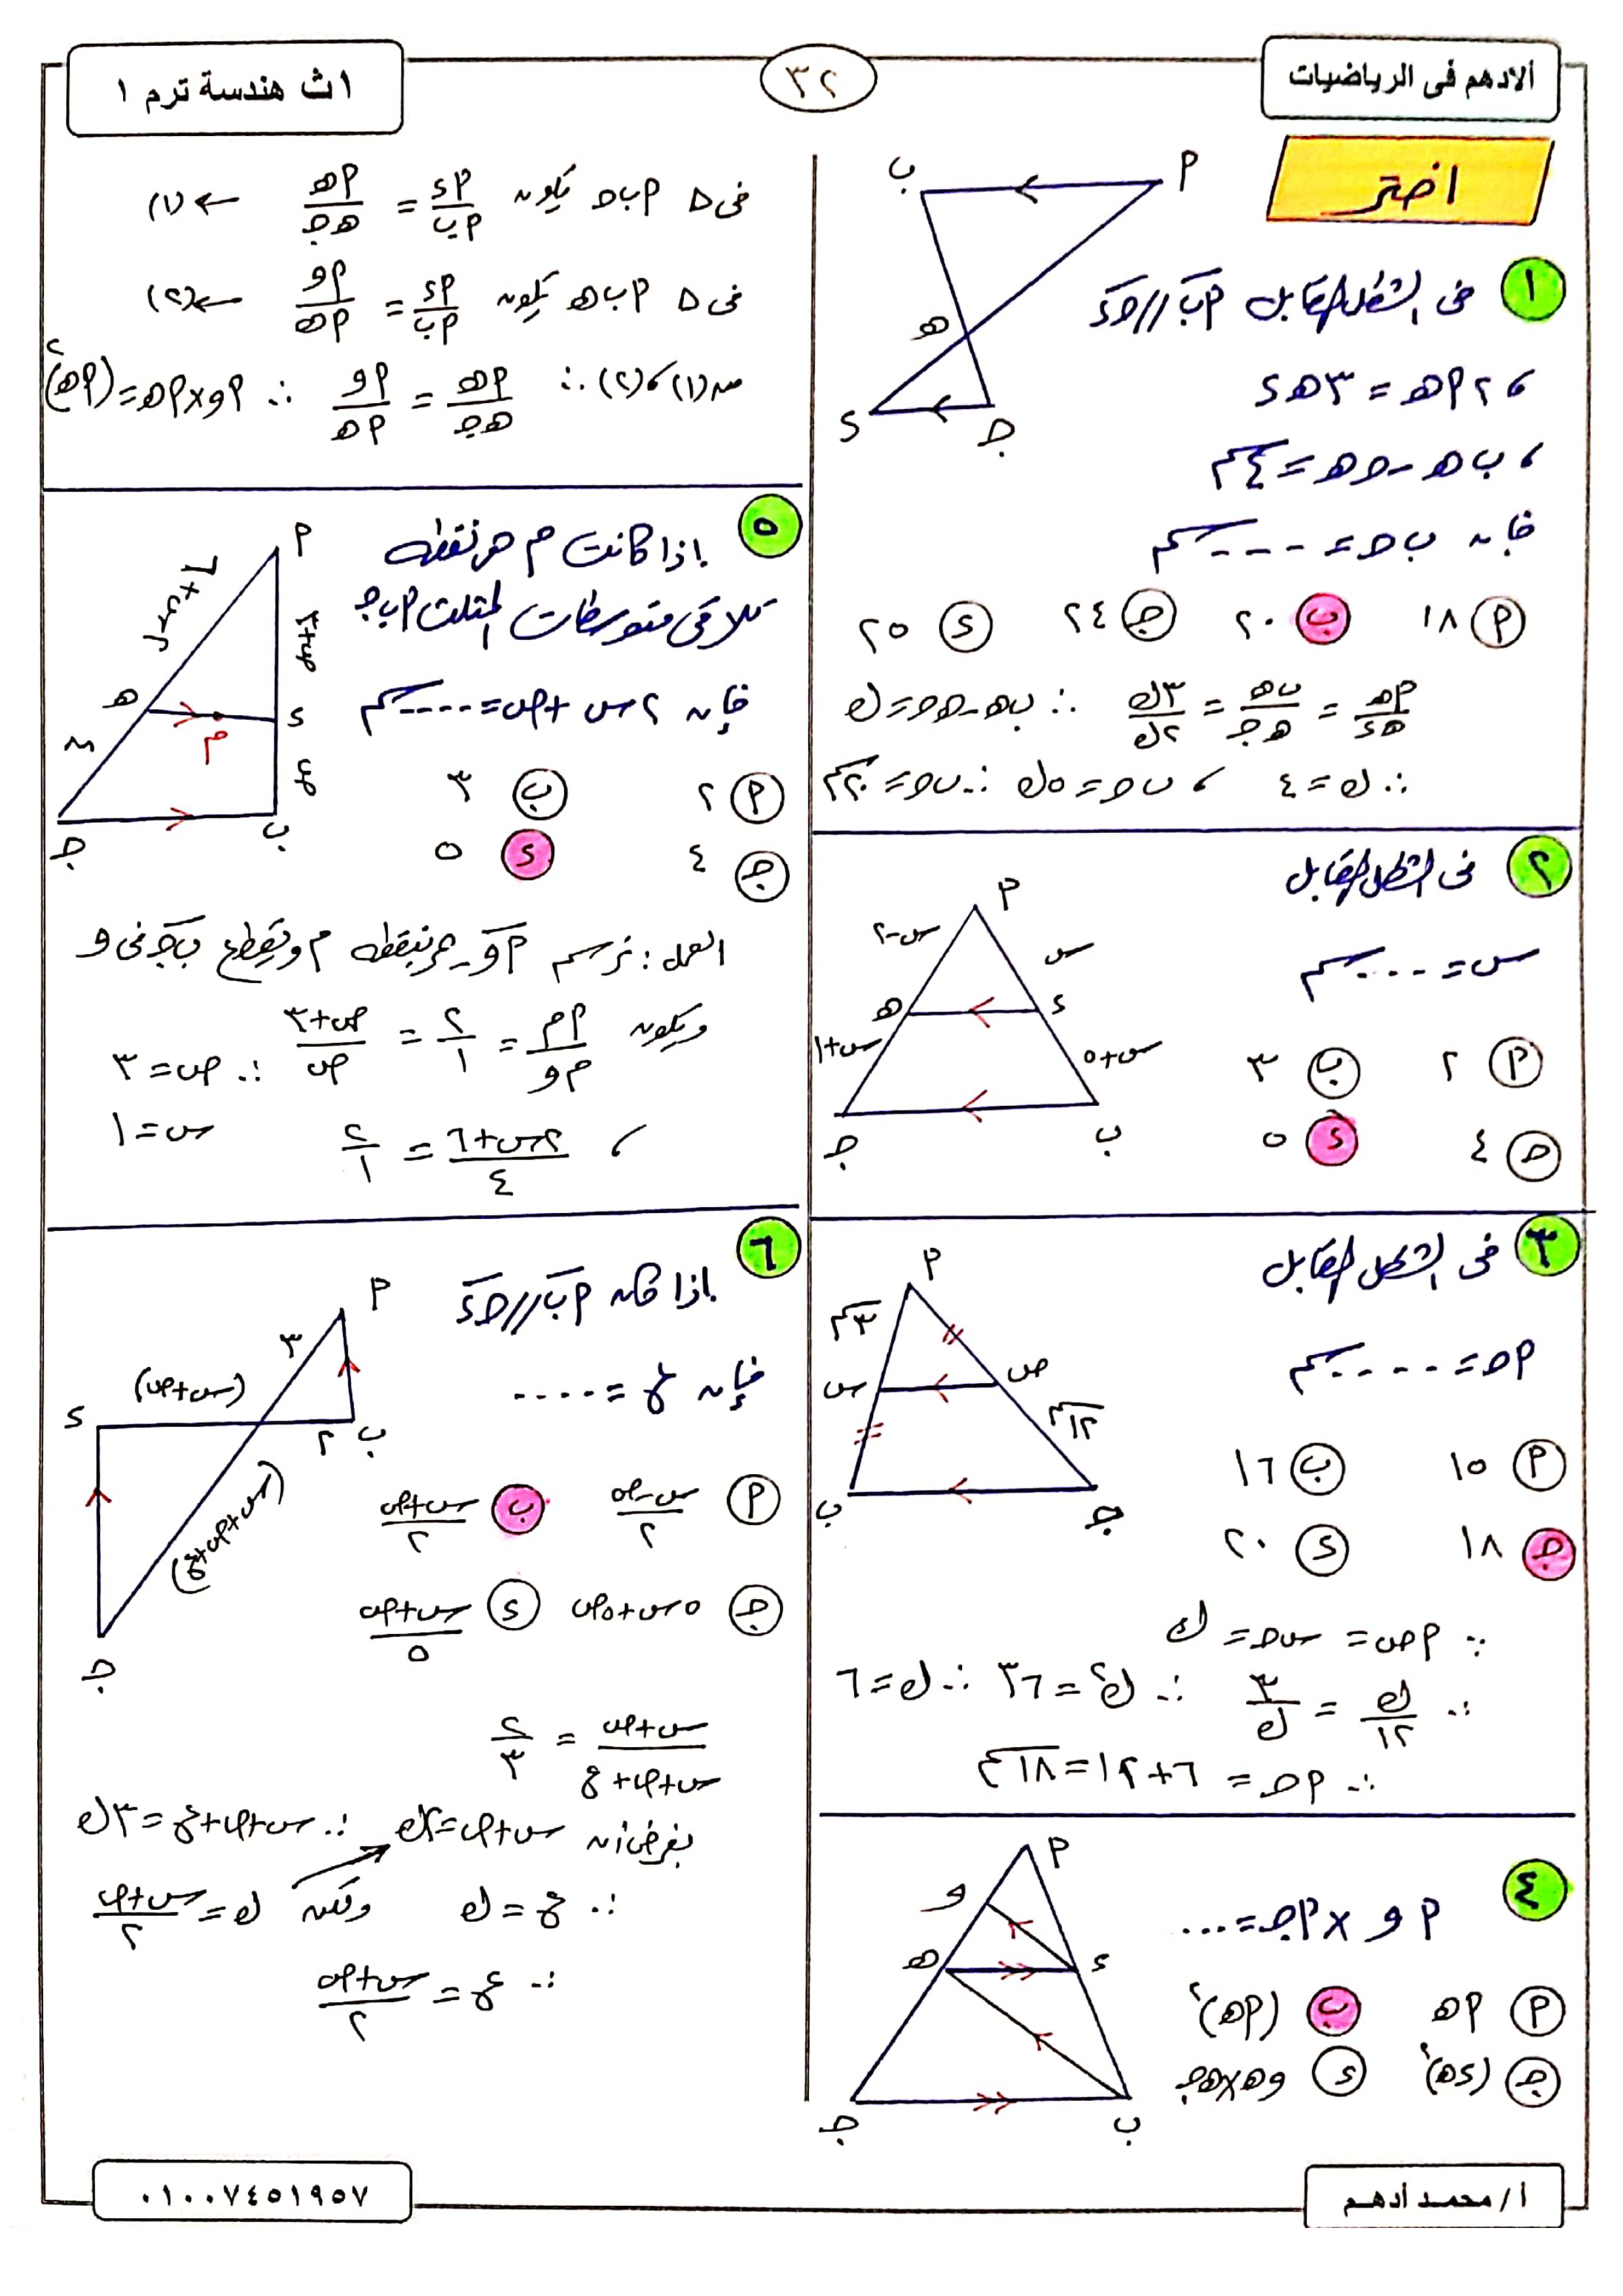 ألادهم فى الرياضيات
٣٢
١ث هندسة ترم ١
اختر
١ فى الشكل المقابل أب // جـ د
، ٢ أهـ = ٣ هـ د
، ب هـ - جـ هـ = ٤ سم
فإن ب جـ = ---- سم
أ ١٨ ب ٢٠ جـ ٢٤ د ٢٥
أهـ/هـ د = ب هـ/هـ جـ = ٣ك/٢ك ∴ ب هـ - هـ جـ = ك
∴ ك = ٤ ، ب جـ = ٥ك ∴ ب جـ = ٢٠ سم
أ ب هـ د جـ
٢ فى الشكل المقابل
س = ---- سم
أ ٢ ب ٣
جـ ٤ د ٥
أ س-٢ س هـ د س+١ س+٥ جـ ب
٣ فى الشكل المقابل
أ جـ = ---- سم
أ ١٥ ب ١٦
جـ ١٨ د ٢٠
أ ٣سم س ص ١٢سم ب جـ
∵ أص = س ب = ك
∴ ك/١٢ = ٣/ك ∴ ك٢ = ٣٦ ∴ ك = ٦
∴ أ جـ = ٦ + ١٢ = ١٨ سم
٤ أ و × أ جـ = ...
أ أهـ ب (أهـ)٢
جـ (د هـ)٢ د وهـ × هـ جـ
أ و هـ د جـ ب
فى △ أ ب جـ يكون أد/أب = أهـ/هـ جـ ← (١)
فى △ أ ب هـ يكون أد/أب = أو/أهـ ← (٢)
من (١) ، (٢) ∴ أهـ/هـ جـ = أو/أهـ ∴ أو × أهـ = (أهـ)٢
٥ إذا كانت م هى نقطة
تلاقى متوسطات المثلث أ ب جـ
فإن ٢س + ص = ---- سم
أ ٢ ب ٣
جـ ٤ د ٥
أ ٢س+٦ ص+٣ هـ م د ٤ جـ ب
العمل : نرسم أو يمر بنقطة م ويقطع ب جـ فى و
ويكون أم/م و = ٢/١ = ص+٣/ص ∴ ص = ٣
، ٢س+٦/٤ = ٢/١ س = ١
٦ إذا كان أب // جـ د
فإن ع = ....
أ س-ص/٢ ب س+ص/٢
جـ ٥س+٥ص د س+ص/٥
أ ٣ (س+ص) د ٢ ب (س+ص+ع) جـ
س+ص/س+ص+ع = ٢/٣
بفرض أن س+ص = ٢ك ∴ س+ص+ع = ٣ك
∴ ع = ك ولكن ك = س+ص/٢
∴ ع = س+ص/٢
أ / محمد أدهم
٠١٠٠٧٤٥١٩٥٧